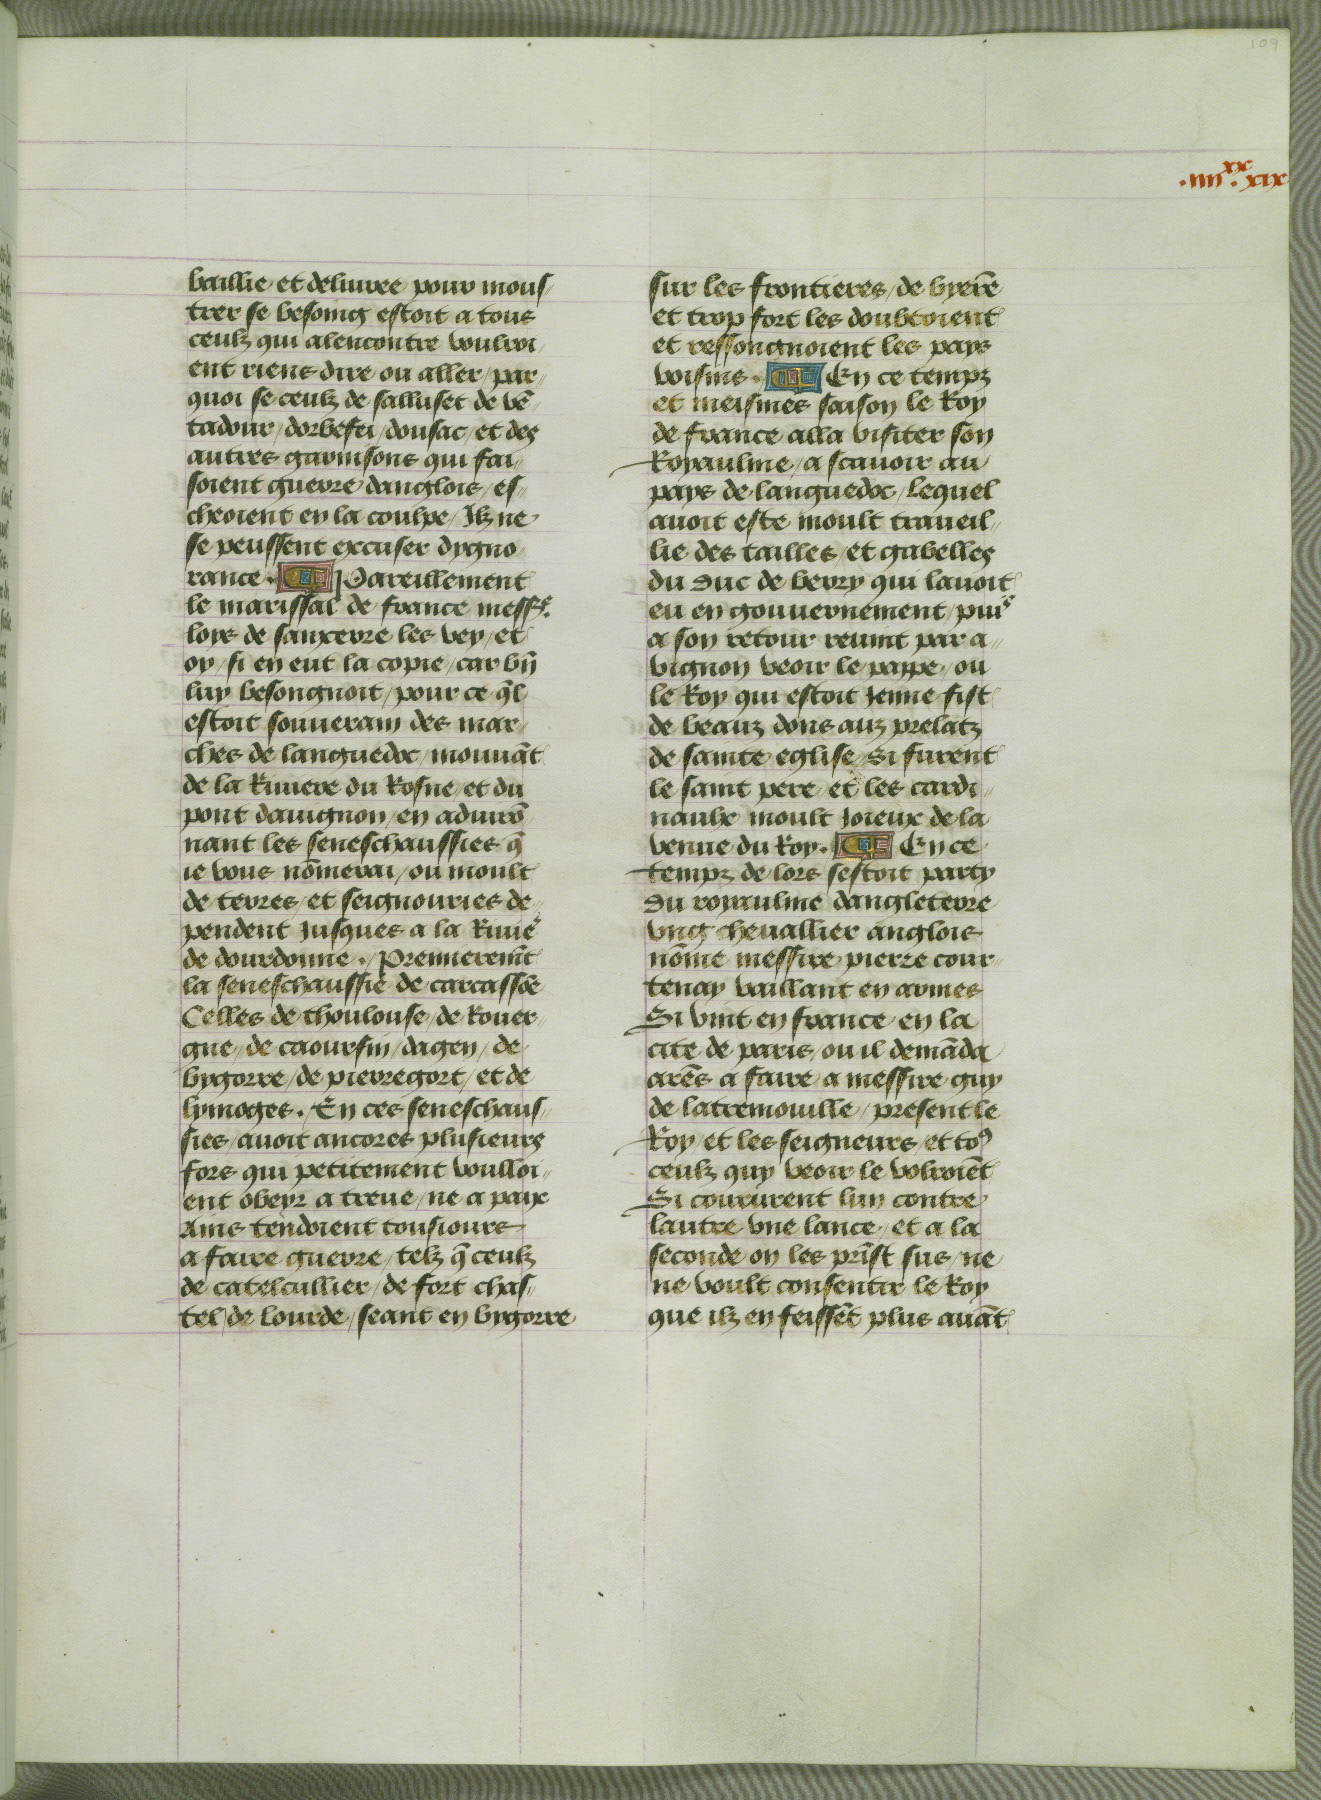 109
.iiii xx . xix
baillie et deliuree pour mous/
trer se besoing estoit a tous
ceulz qui alencontre voulroi
ent riens dire ou aller / par//
quoi se ceulz de salluset de vē//
tadour / dorbesci / dousac / et des
autres garnisons qui fai//
soient guerre danglois / es//
cheoient en la coulpe / Ilz ne
se peussent excuser dygno
rance . Pareillement
le marissal de france messr̄e.
loys de sanxerre les vey / et
oy / si en eut la copie / car bn̄
luy besongnoit / pour ce q̄l
estoit souuerain des mar/
ches de languedoc / mouuāt
de la Riuiere du Rosne / et du
pont dauignon / en aduirō
nant les seneschaussies q̄
ie vous nōmerai / ou moult
de terres / et seignouries de//
pendent Jusques a la Riuie͛
de dourdonne . / Premieremt̄
la seneschaussie de carcassōe
Celles de thoulouse / de Rouer/
gue / de caoursin / dagen / de
bygorre / de pierregort / et de
lymoges . En ces seneschaus//
sies / auoit ancores plusieurs
fors qui petitement voulloi//
ent obeyr a treue / ne a paix
Ains tendoient tousiours
a faire guerre / telz q̄ ceulz
de catelcullier / de fort chas//
tel / de lourde / seant en bygorre
sur les frontieres / de byerē
et trop fort les doubtoient
et ressongnoient les pays
voisins . En ce tempz
et meismes saison le Roy
de france alla visiter son
Royaulme / a scauoir au
pays de languedoc / Lequel
auoit este moult traueil//
lie des tailles / et gabelles
du Duc de berry qui lauoit
eu en gouuernement / puis
a son retour reuint par a//
vignon veoir le pappe / ou
le Roy qui estoit Jenne fist
de beauz dons auz prelatz
de sainte eglise / Si furent
le saint pere / et les cardi//
naulx moult Joieux de la
venue du Roy . En ce
tempz de lors sestoit party
Du royaulme dangleterre
vng cheuallier anglois
nōme messire pierre cour/
tenay vaillant en armes
Si vint en france en la
cite de paris / ou il demāda
armēs a faire a messire guy
de latremouille / present le
Roy / et les seigneurs / et toꝰ
ceulz quy veoir le volroiēt
Si coururent luy contre
lautre vne lance / et a la
seconde on les prīst sus / ne
ne voult consentir le Roy
que ilz en feissēt plus auāt